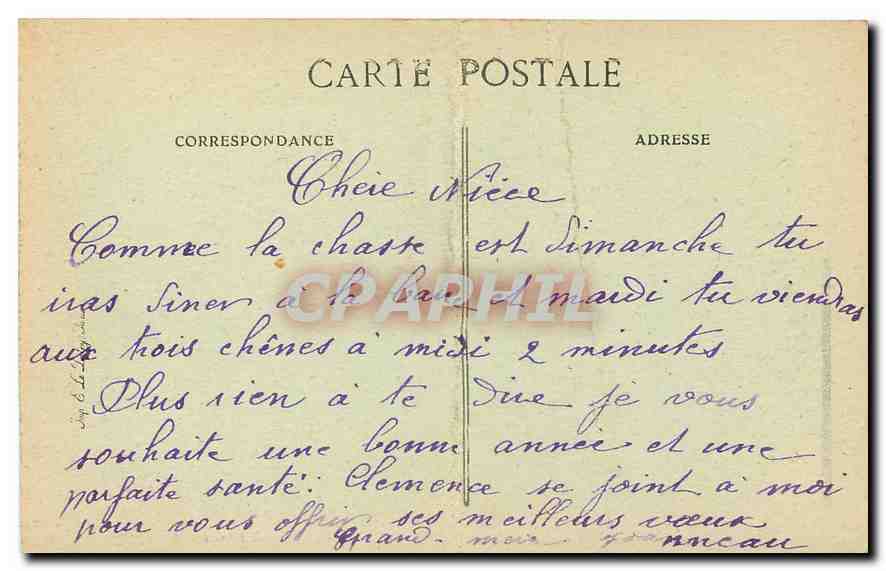 CARTE POSTALE
CORRESPONDANCE
ADRESSE
Chère Nièce
Comme la chasse est dimanche tu
iras diner à la et mardi tu viendras
aux trois chênes à midi 2 minutes
Plus rien à te dire je vous
souhaite une bonne année et une
parfaite santé. Clemence se joint à moi
pour vous offrir ses meilleurs vœux
Grand-
CPAPHIL